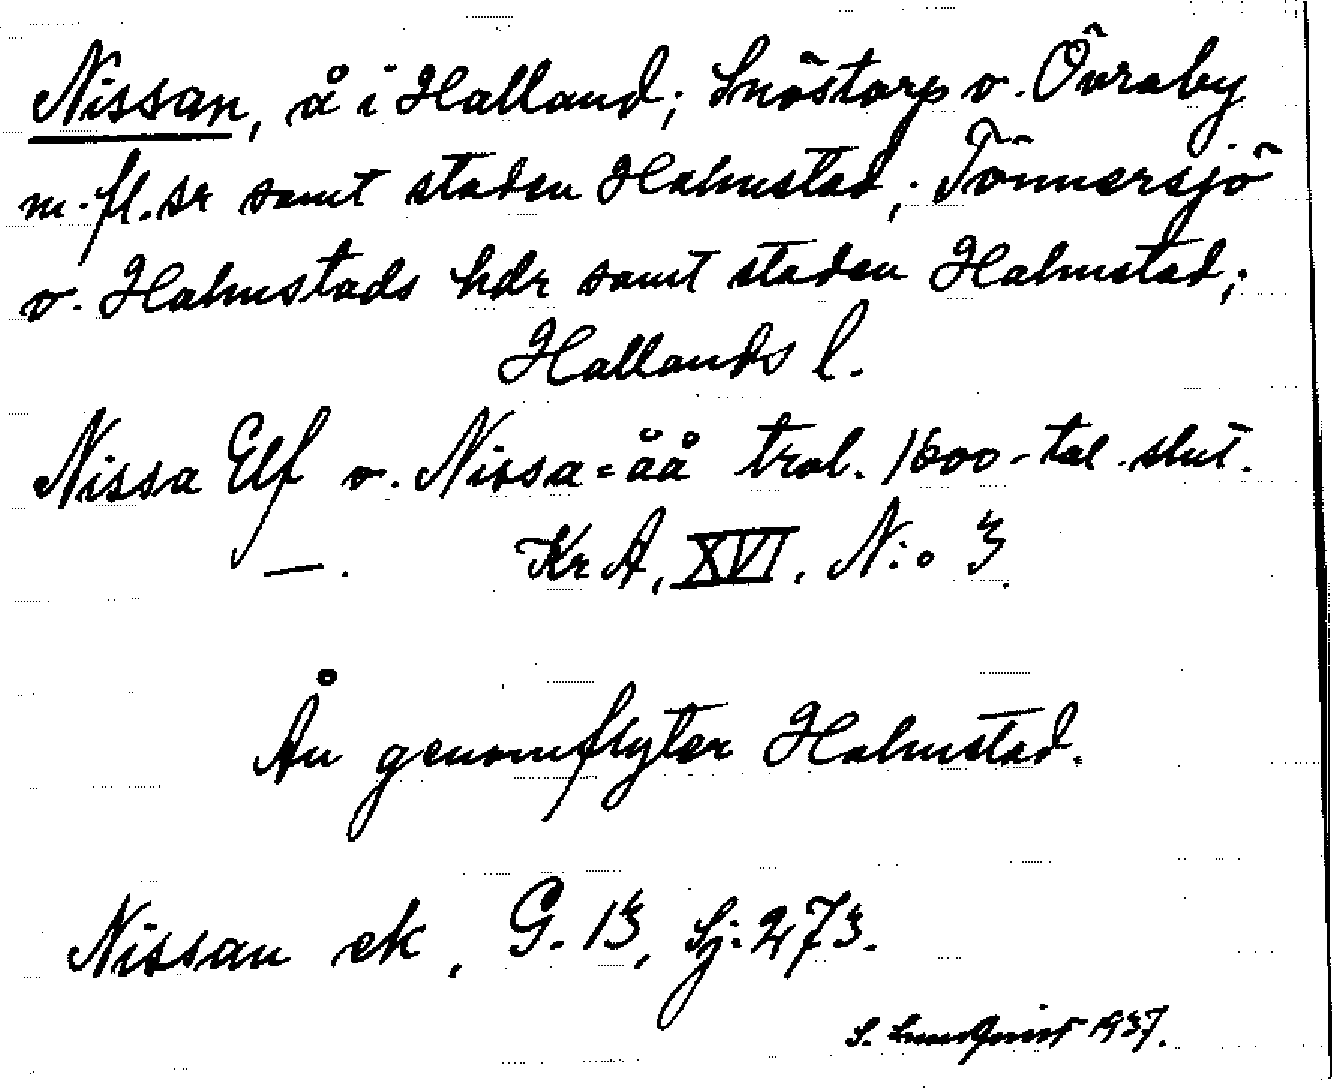 Nissan, å i Halland; Snöstorp o. Övraby
m. fl. sr samt staden Halmstad; Tönnersjö
o. Halmstads hdr samt staden Halmstad;
Hallands l.
Nissa Elf o. Nissa=åå trol. 1600-tal. slut.
—. KrA, XVI, N:o 3.
Ån genomflyter Halmstad.
Nissan ek, G. 13, Sj: 273.
S. Lundqvist 1937.